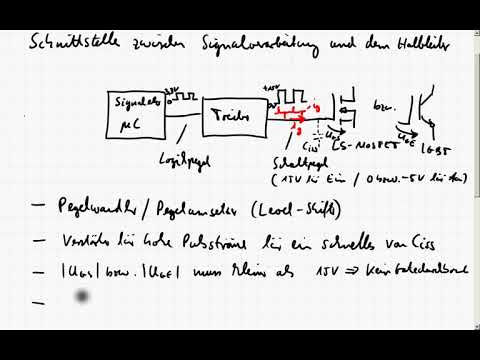 Schnittstelle zwischen Signalverarbeitung und dem Halbleiter
3,3V
0
+15V
0
Signale
µC
Treiber
ig
Ciss
UGS
LS-MOSFET
bzw.
UGE
IGBT
Logikpegel
Schaltpegel
(15V für Ein / 0 bzw. -5V für Aus)
— Pegelwandler / Pegelumsetzer (Level-Shifts)
— Verstärker für hohe Pulsströme für ein schnelles von Ciss
— |UGS| bzw. |UGE| muss kleiner als 15V ⇒ kein
—